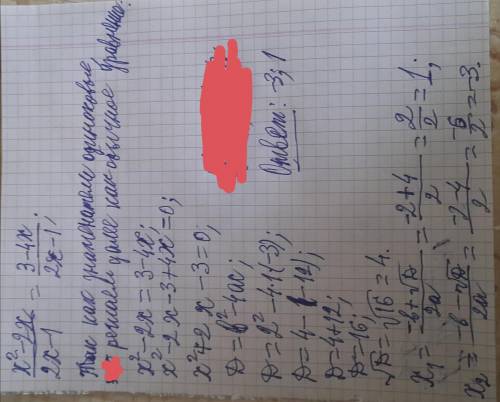 x²-2x/2x-1 = 3-4x/2x-1;
Так как знаменатели одинаковые,
решаем далее как обычное уравнение:
x²-2x=3-4x;
x²-2x-3+4x=0;
x²+2x-3=0;
D=b²-4ac;
D=2²-4·1·(-3);
D=4-(-12);
D=4+12;
D=16;
√D=√16=4.
x₁=-b+√D/2a=-2+4/2=2/2=1;
x₂=-b-√D/2a=-2-4/2=-6/2=-3.
Ответ: -3; 1